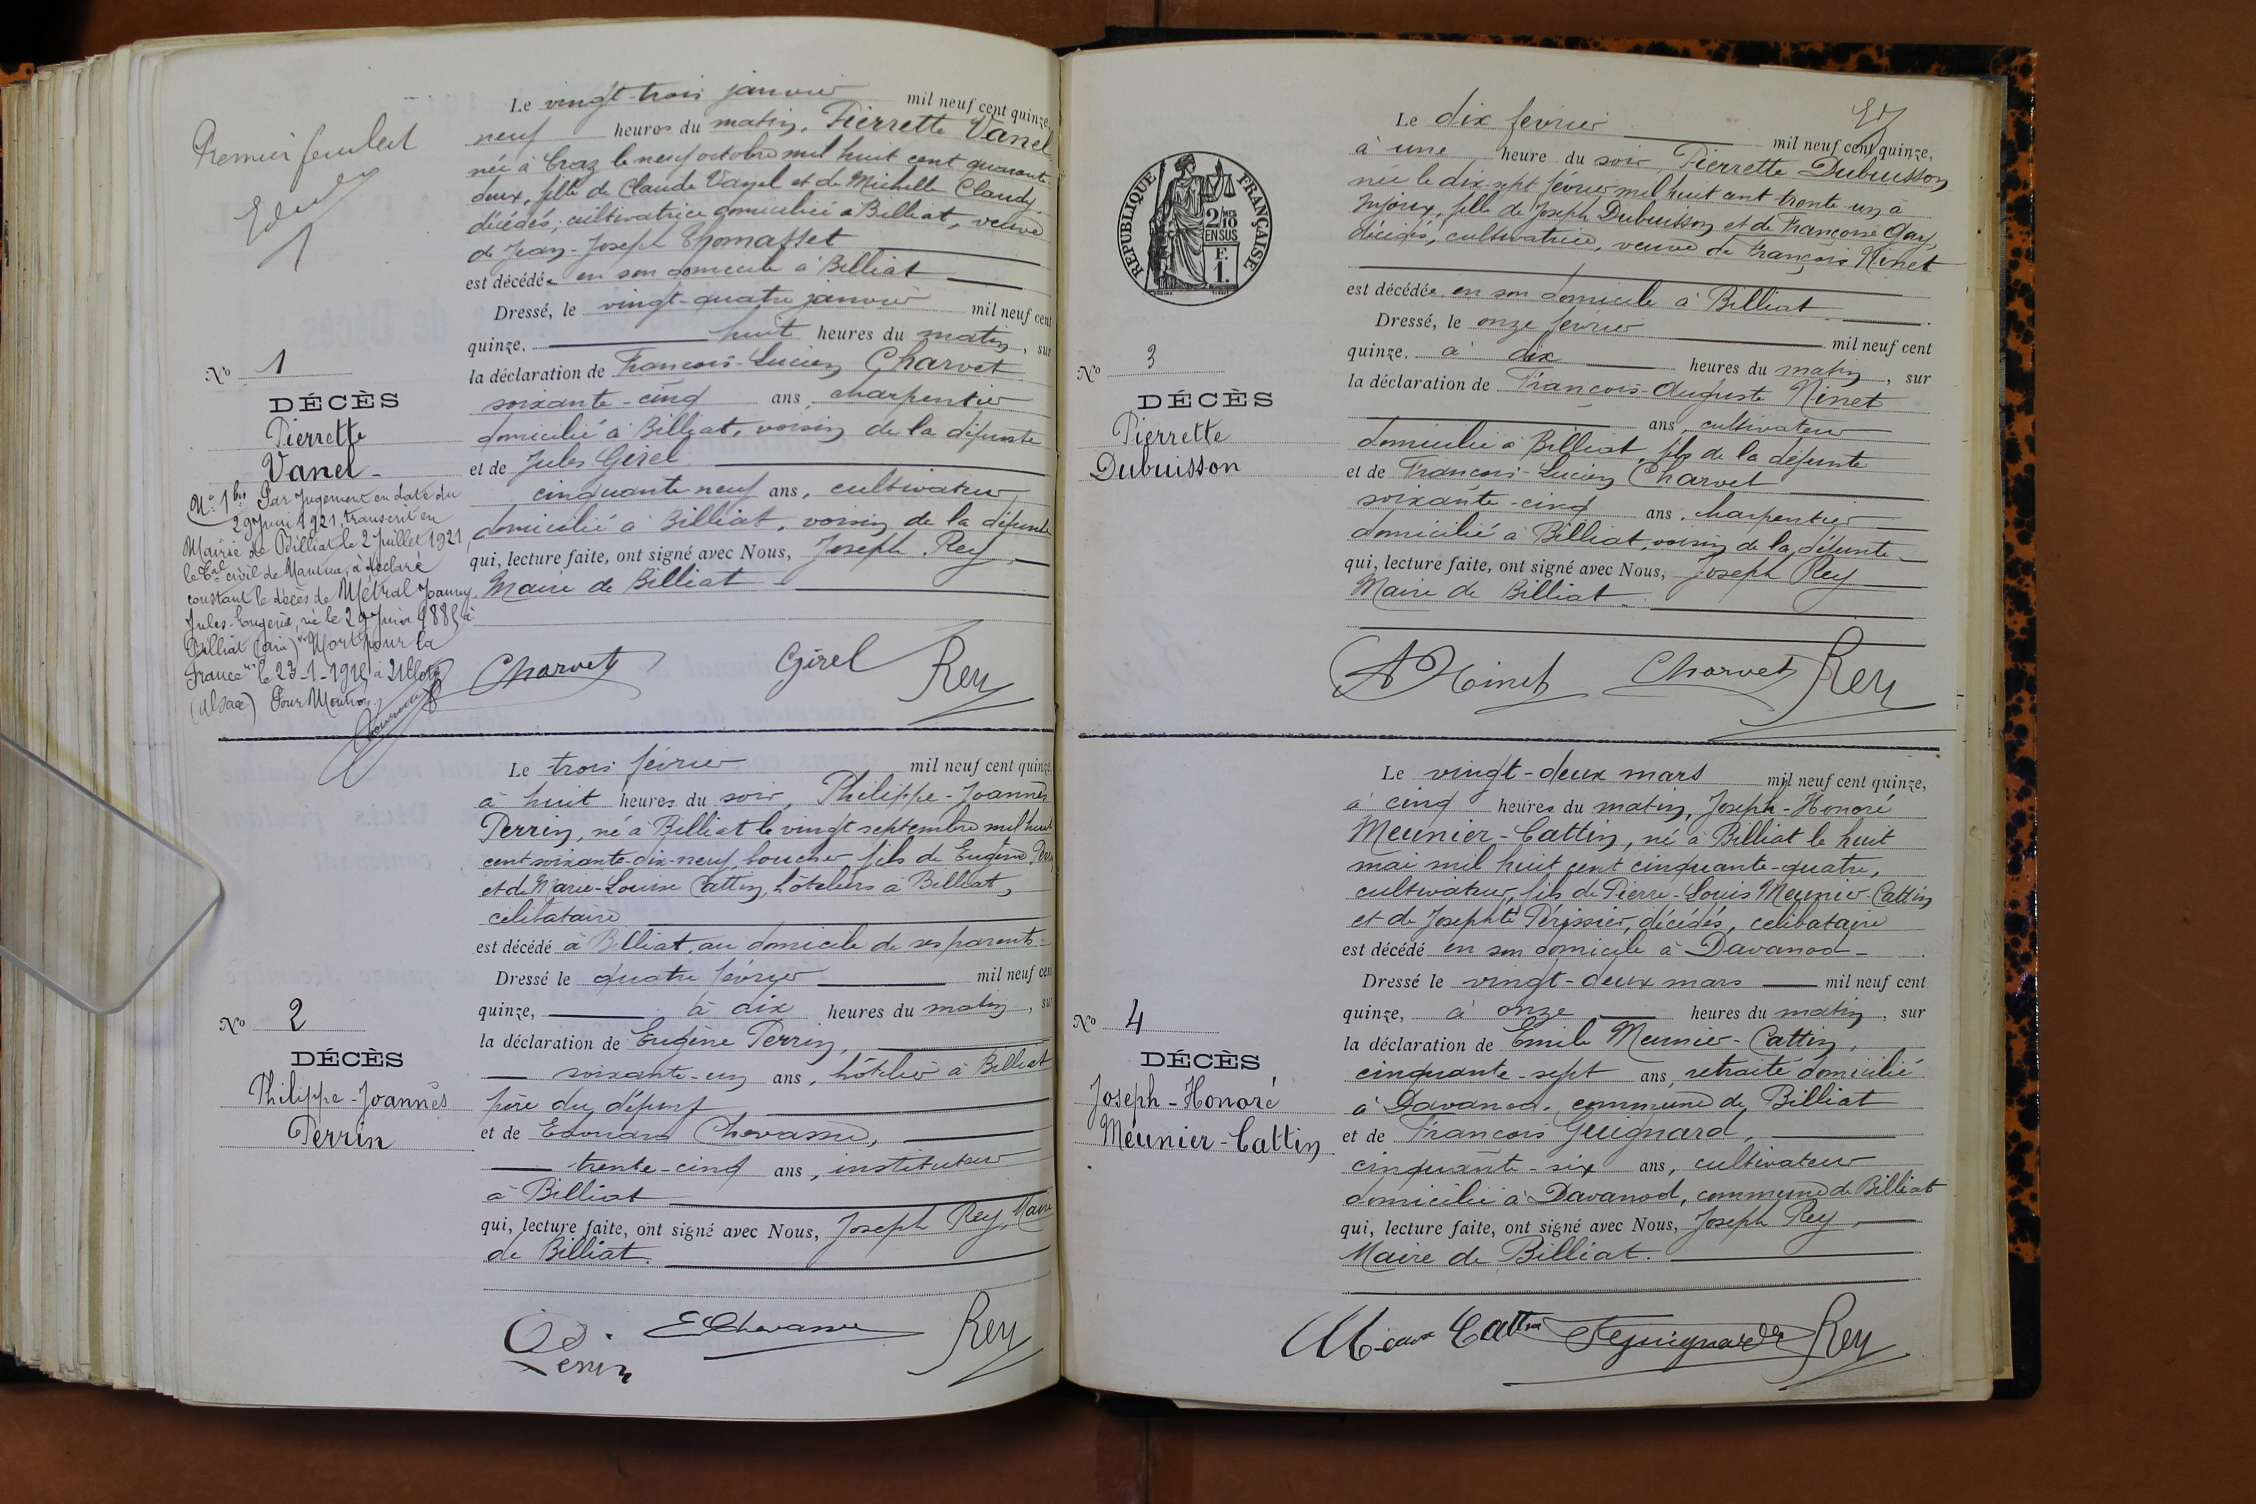 Premier feuillet
Le vingt-trois janvier mil neuf cent quinze,
neuf heures du matin, Pierrette Vanel
née à Craz le neuf octobre mil huit cent quarante
deux, fille de Claude Vanel et de Michelle Claudy
décédés, cultivatrice domiciliée à Billiat, veuve
de Jean-Joseph Thomasset
est décédée en son domicile à Billiat
Dressé, le vingt-quatre janvier mil neuf cent
quinze, huit heures du matin, sur
la déclaration de François-Lucien Charvet
soixante-cinq ans, charpentier
domicilié à Billiat, voisin de la défunte
et de Jules Girel
cinquante neuf ans, cultivateur
domicilié à Billiat, voisin de la défunte
qui, lecture faite, ont signé avec Nous, Joseph Rey
Maire de Billiat
Charvet Girel Rey
No 1
DÉCÈS
Pierrette
Vanel
No 1 bis Par Jugement en date du
29 Juin 1921, transcrit en
Mairie de Billiat le 2 Juillet 1921,
le Cal civil de Nantua, a déclaré
constant le décès de Métral Joanny
Jules-Eugène, né le 29 Juin 1885 à
Billiat (Ain) "Mort pour la
France" le 23-1-1915 à
(Alsace) Pour Mention
Le trois février mil neuf cent quinze,
à huit heures du soir, Philippe-Joannès
Perrin, né à Billiat le vingt septembre mil huit
cent soixante-dix-neuf, boucher, fils de Eugène Perrin
et de Marie-Louise Cattin, hôteliers à Billiat,
célibataire
est décédé à Billiat, au domicile de ses parents
Dressé le quatre février mil neuf cent
quinze, à dix heures du matin, sur
la déclaration de Eugène Perrin,
soixante-un ans, hôtelier à Billiat
père du défunt
et de Edouard Chavanne,
trente-cinq ans, instituteur
à Billiat
qui, lecture faite, ont signé avec Nous, Joseph Rey, Maire
de Billiat.
Perrin EChavanne Rey
No 2
DÉCÈS
Philippe-Joannès
Perrin
RÉPUBLIQUE FRANÇAISE
2/10 MES
EN SUS
F.
1.
Le dix février mil neuf cent quinze,
à une heure du soir, Pierrette Dubuisson
née le dix sept février mil huit cent trente-un à
Injoux, fille de Joseph Dubuisson et de Françoise Gay,
décédés, cultivatrice, veuve de François Ninet
est décédée en son domicile à Billiat
Dressé, le onze février mil neuf cent
quinze, à dix heures du matin, sur
la déclaration de François-Auguste Ninet
ans, cultivateur
domicilié à Billiat, fils de la défunte
et de François-Lucien Charvet
soixante-cinq ans, charpentier
domicilié à Billiat, voisin de la défunte
qui, lecture faite, ont signé avec Nous, Joseph Rey
Maire de Billiat
A Ninet Charvet Rey
No 3
DÉCÈS
Pierrette
Dubuisson
Le vingt-deux mars mil neuf cent quinze,
à cinq heures du matin, Joseph-Honoré
Meunier-Cattin, né à Billiat le huit
mai mil huit cent cinquante-quatre,
cultivateur, fils de Pierre-Louis Meunier-Cattin
et de Josephte Périssier, décédés, célibataire
est décédé en son domicile à Davanod
Dressé le vingt-deux mars mil neuf cent
quinze, à onze heures du matin, sur
la déclaration de Emile Meunier-Cattin,
cinquante-sept ans, retraité domicilié
à Davanod, commune de Billiat
et de François Guignard,
cinquante-six ans, cultivateur
domicilié à Davanod, commune de Billiat
qui, lecture faite, ont signé avec Nous, Joseph Rey,
Maire de Billiat.
Cattin Rey
No 4
DÉCÈS
Joseph-Honoré
Meunier-Cattin